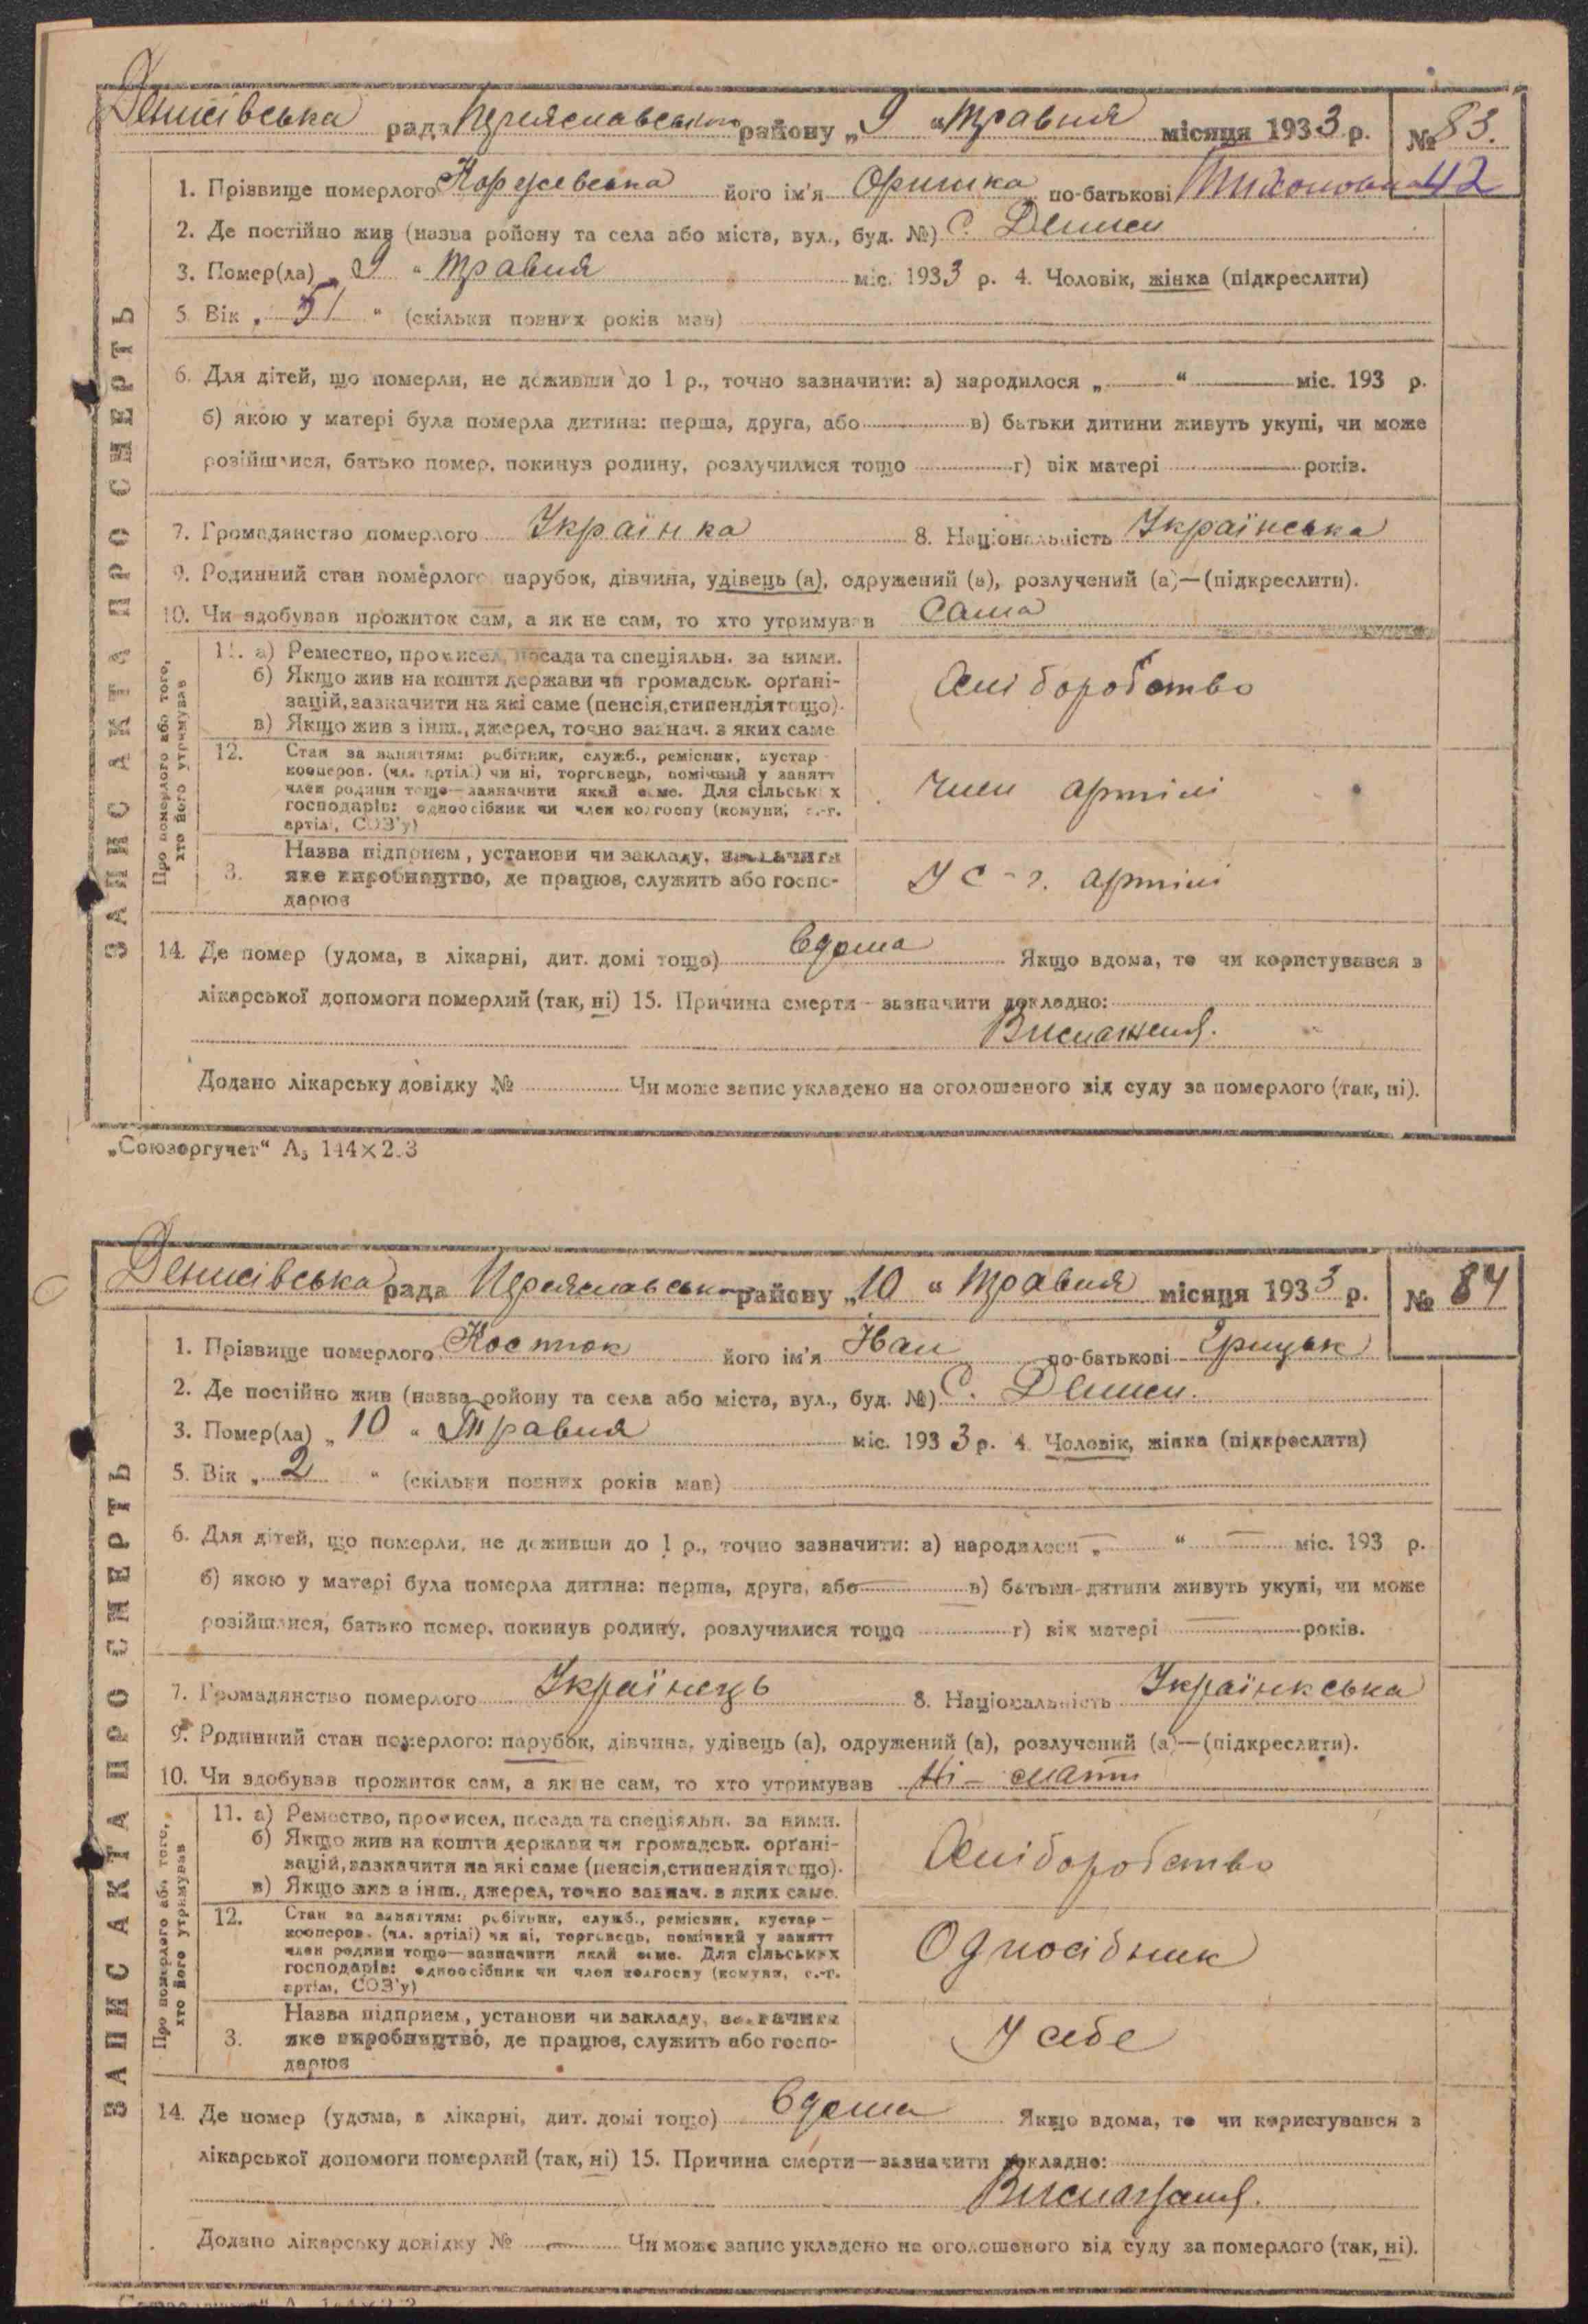 Денисівська рада Переяславського району „ 9 “ Травня місяця 1933 р. № 83.
42
1. Прізвище померлого Коржевська його ім'я Оришка по-батькові Тихоновна
2. Де постійно жив (назва ройону та села або міста, вул., буд. №) С. Дениси
3. Помер(ла) „ 9 “ Травня міс. 1933 р. 4. Чоловік, жінка (підкреслити)
5. Вік „ 51 “ (скільки повних років мав)
6. Для дітей, що померли, не доживши до 1 р., точно зазначити: а) народилося „ “ міс. 193 р.
б) якою у матері була померла дитина: перша, друга, або в) батьки дитини живуть укупі, чи може
розійшлися, батько помер, покинув родину, розлучилися тощо г) вік матері років.
7. Громадянство померлого Українка 8. Національність Українська
9. Родинний стан померлого: парубок, дівчина, удівець (а), одружений (а), розлучений (а)—(підкреслити).
10. Чи здобував прожиток сам, а як не сам, то хто утримував Сама
ЗАПИС АКТА ПРО СМЕРТЬ
Про померлого або того,
хто його утримував
11. а) Ремество, промисел, посада та спеціяльн. за ними.
б) Якщо жив на кошти держави чи громадськ. орґані-
зацій, зазначити на які саме (пенсія, стипендія тощо).
в) Якщо жив з інш., джерел, точно зазнач. з яких саме
Хліборобство
12. Стан за заняттям: робітник, служб., ремісник, кустар -
кооперов. (чл. артілі) чи ні, торговець, помічний у занятт
член родини тощо—зазначити який саме. Для сільських
господарів: одноосібник чи член колгоспу (комуни, с.-г.
артілі, СОЗ'у)
Член артілі
3. Назва підприєм, установи чи закладу, зазначити
яке виробництво, де працює, служить або госпо-
дарює
У с-г. артілі
14. Де помер (удома, в лікарні, дит. домі тощо) вдома Якщо вдома, то чи користувався з
лікарської допомоги померлий (так, ні) 15. Причина смерти—зазначити докладно:
Виснаження.
Додано лікарську довідку № Чи може запис укладено на оголошеного від суду за померлого (так, ні).
„Союзоргучет“ А5 144×2.3
Денисівська рада Переяславського району „ 10 “ Травня місяця 1933 р. № 84
1. Прізвище померлого Костюк його ім'я Іван по-батькові Грицьк
2. Де постійно жив (назва ройону та села або міста, вул., буд. №) С. Дениси.
3. Помер(ла) „ 10 “ Травня міс. 1933 р. 4. Чоловік, жінка (підкреслити)
5. Вік „ 2 “ (скільки повних років мав)
6. Для дітей, що померли, не доживши до 1 р., точно зазначити: а) народилося „ “ міс. 193 р.
б) якою у матері була померла дитина: перша, друга, або в) батьки дитини живуть укупі, чи може
розійшлися, батько помер, покинув родину, розлучилися тощо г) вік матері років.
7. Громадянство померлого Українець 8. Національність Українкська
9. Родинний стан померлого: парубок, дівчина, удівець (а), одружений (а), розлучений (а)—(підкреслити).
10. Чи здобував прожиток сам, а як не сам, то хто утримував Ні – мати
ЗАПИС АКТА ПРО СМЕРТЬ
Про померлого або того,
хто його утримував
11. а) Ремество, промисел, посада та спеціяльн. за ними.
б) Якщо жив на кошти держави чи громадськ. орґані-
зацій, зазначити на які саме (пенсія, стипендія тощо).
в) Якщо жив з інш., джерел, точно зазнач. з яких саме.
Хліборобство
12. Стан за заняттям: робітник, служб., ремісник, кустар —
кооперов. (чл. артілі) чи ні, торговець, помічний у занятт
член родини тощо—зазначити який саме. Для сільських
господарів: одноосібник чи член колгоспу (комуни, с.-г.
артілі, СОЗ'у)
Одноосібник
3. Назва підприєм, установи чи закладу, зазначити
яке виробництво, де працює, служить або госпо-
дарює
У себе
14. Де помер (удома, в лікарні, дит. домі тощо) вдома Якщо вдома, то чи користувався з
лікарської допомоги померлий (так, ні) 15. Причина смерти—зазначити докладно:
Виснаження.
Додано лікарську довідку № Чи може запис укладено на оголошеного від суду за померлого (так, ні).